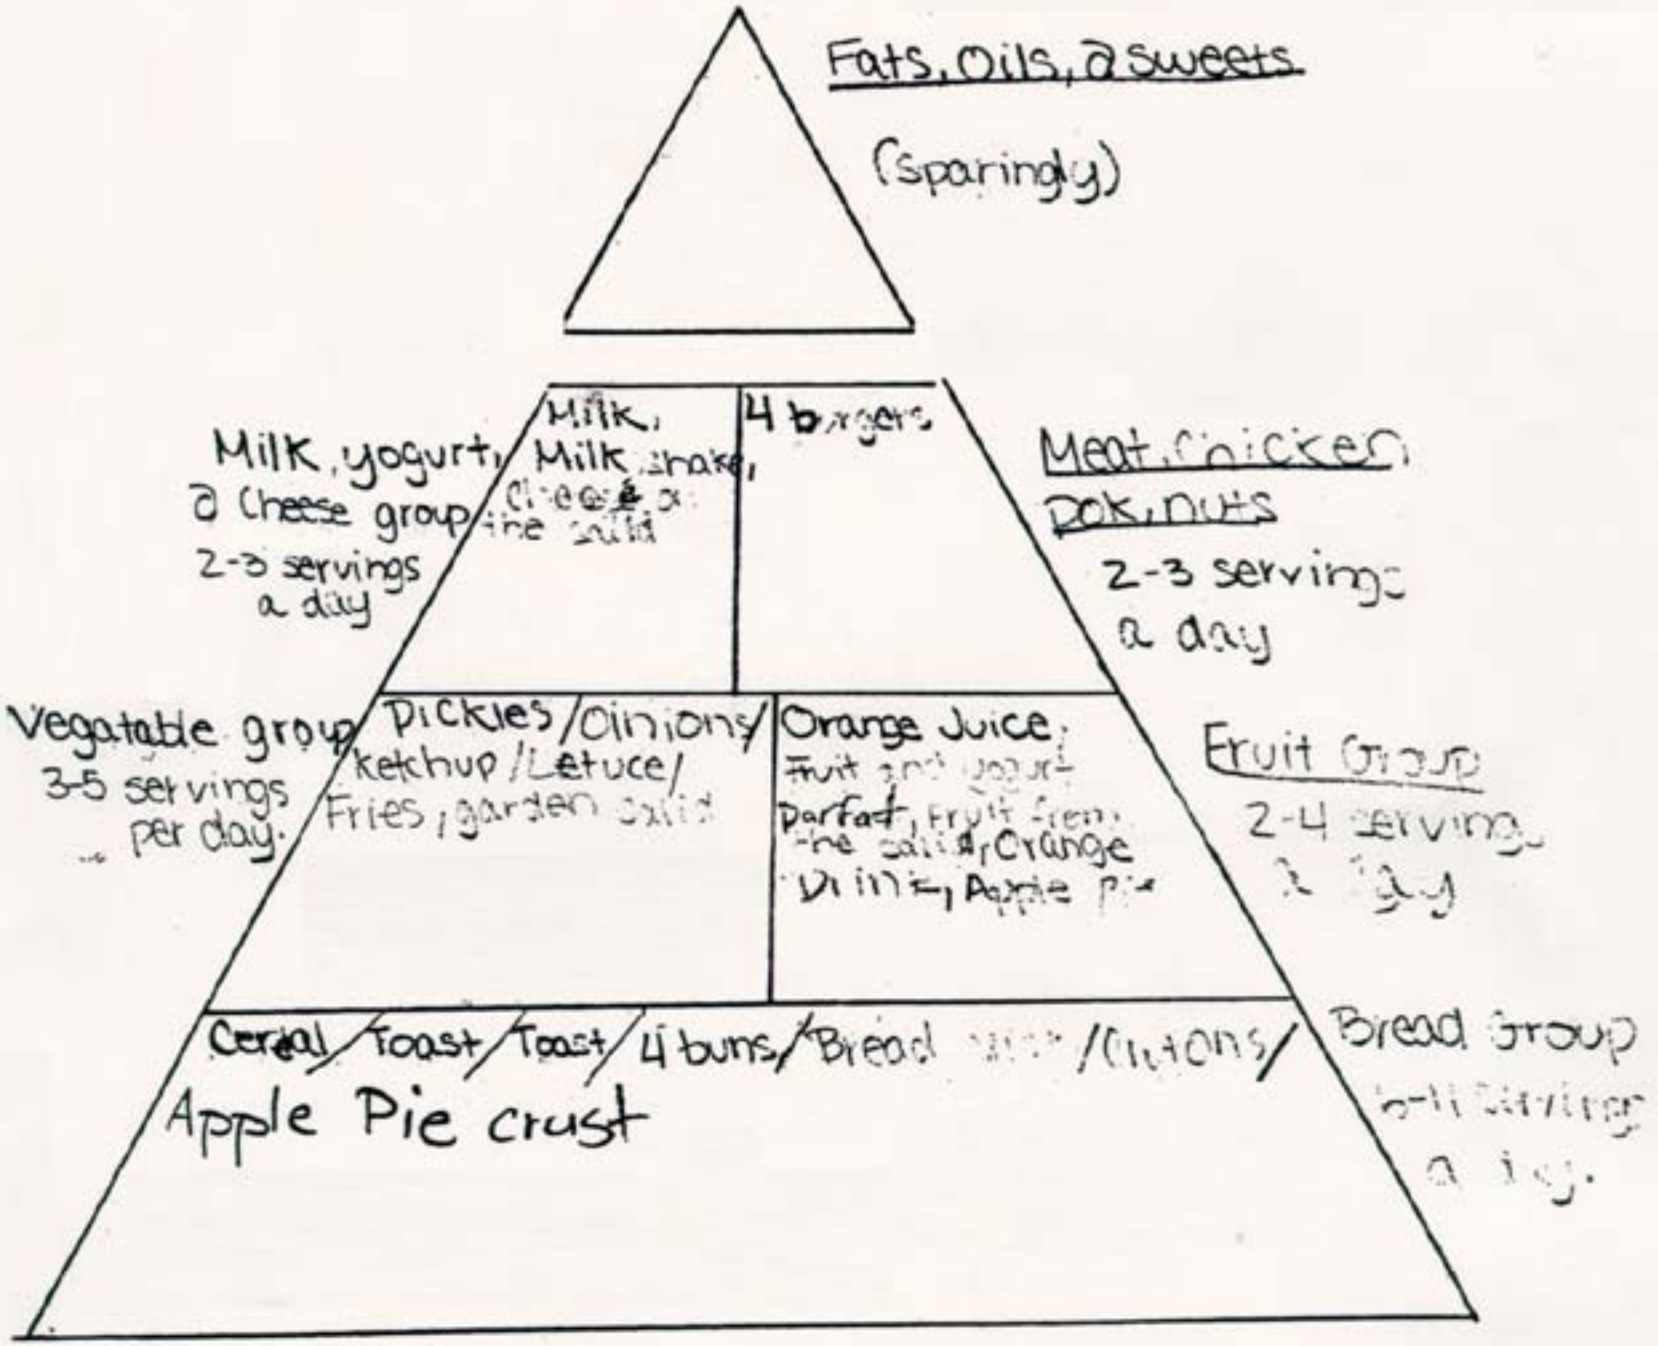 Fats, Oils, & Sweets
(sparingly)
Milk, yogurt,
& Cheese group
2-3 servings
a day
Milk,
Milk shake,
Cheese
the salid
4 burgers
Meat, Chicken
Pok, nuts
2-3 servings
a day
Vegatable group
3-5 servings
per day.
Pickles / Oinions /
Ketchup / Letuce /
Fries, garden salid
Orange Juice,
Fruit and yogurt
Parfat, Fruit from
the salid, Orange
Drink, Apple pie
Fruit Group
2-4 servings
a day
Cereal / Toast / Toast / 4 buns / Bread / Crutons /
Apple Pie crust
Bread Group
6-11 servings
a day.